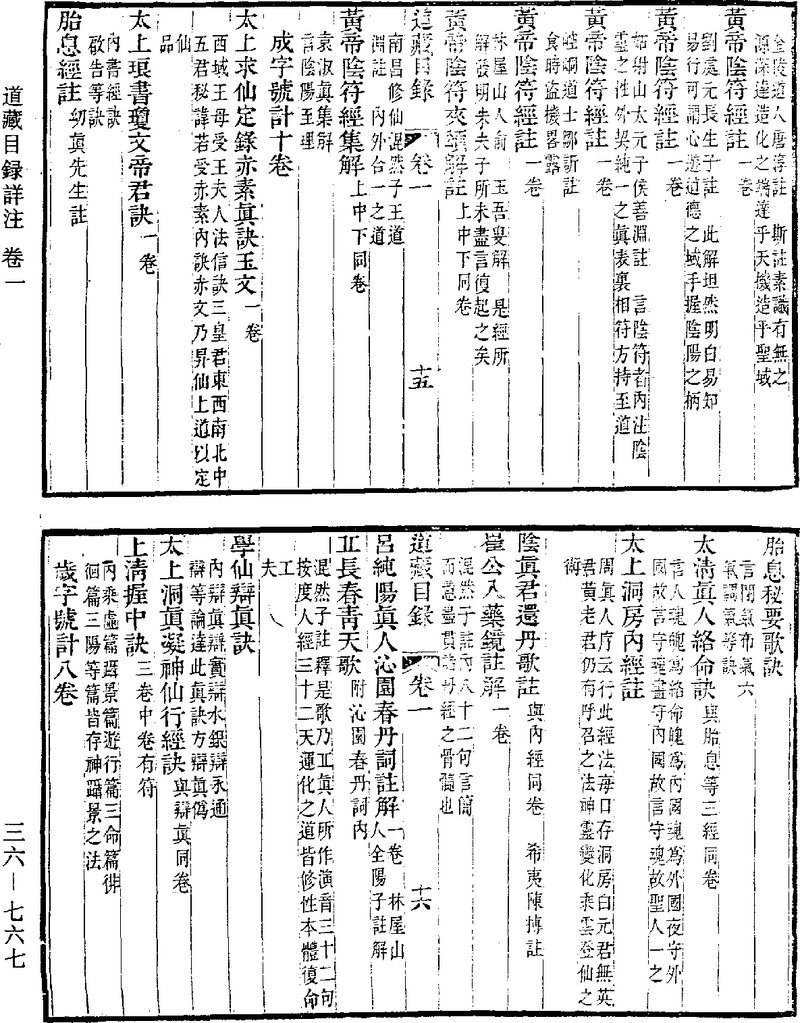 黃帝陰符經註一卷
金陵道人唐淳註　斯註素議有無之
源深達造化之端達乎天機造乎聖域
黃帝陰符經註一卷
劉處元長生子註　此解坦然明白易知
易行可謂心遊道德之域手握陰陽之柄
黃帝陰符經註一卷
姑射山太元子侯善淵註　言陰符者內注陰
靈之性外契純一之眞表裏相符方持至道
黃帝陰符經註一卷
崆峒道士鄒訢註
食時盜機畧露
黃帝陰符經註一卷
林屋山人俞　玉吾叟解　是經所
解發明朱夫子所未盡言復起之矣
黃帝陰符經夾頌解註上中下同卷
道藏目錄　卷一　十五
南昌修仙混然子王道
淵註　內外合一之道
黃帝陰符經集解上中下同卷
袁淑眞集解
言陰陽至理
成字號計十卷
太上求仙定錄亦素眞訣玉文一卷
西域王母受王夫人法信訣三皇君東西南北中
五君秘諱若受赤素內訣赤文乃昇仙上道以定
仙
品
太上琅書瓊文帝君訣一卷
內書經訣
敬告等訣
胎息經註幻眞先生註
胎息秘要歌訣
言閉氣布氣六
氣調氣等訣
太淸眞人絡命訣與胎息等三經同卷
言人魂魄爲絡命魄爲內國魂爲外國夜守外
國故言守魂晝守內國故言守魂故聖人一之
太上洞房內經註
周眞人序云行此經法每日存洞房白元君無英
君黃老君仍有呼召之法神靈變化乘雲登仙之
術
陰眞君還丹歌註與內經同卷　希夷陳摶註
崔公入藥鏡註解一卷
混然子註內八十二句言簡
而意盡貫諸丹經之骨髓也
道藏目錄　卷一　十六
呂純陽眞人沁園春丹詞註解一卷　林屋山
人全陽子註解
丘長春靑天歌附沁園春丹詞內
混然子註釋是歌乃丘眞人所作演音三十二句
按度人經三十二天運化之道皆修性本體復命
工
夫
學仙辯眞訣
內辯眞辯實辯水銀辯汞通
辯等論達此眞訣方辯眞僞
太上洞眞凝神仙行經訣與辯眞同卷
上淸握中訣三卷中卷有符
內乘虛篇躡景篇遊行篇三命篇徘
徊篇三陽等篇皆存神躡景之法
歲字號計八卷
道藏目録詳注　卷一
三六—七六七